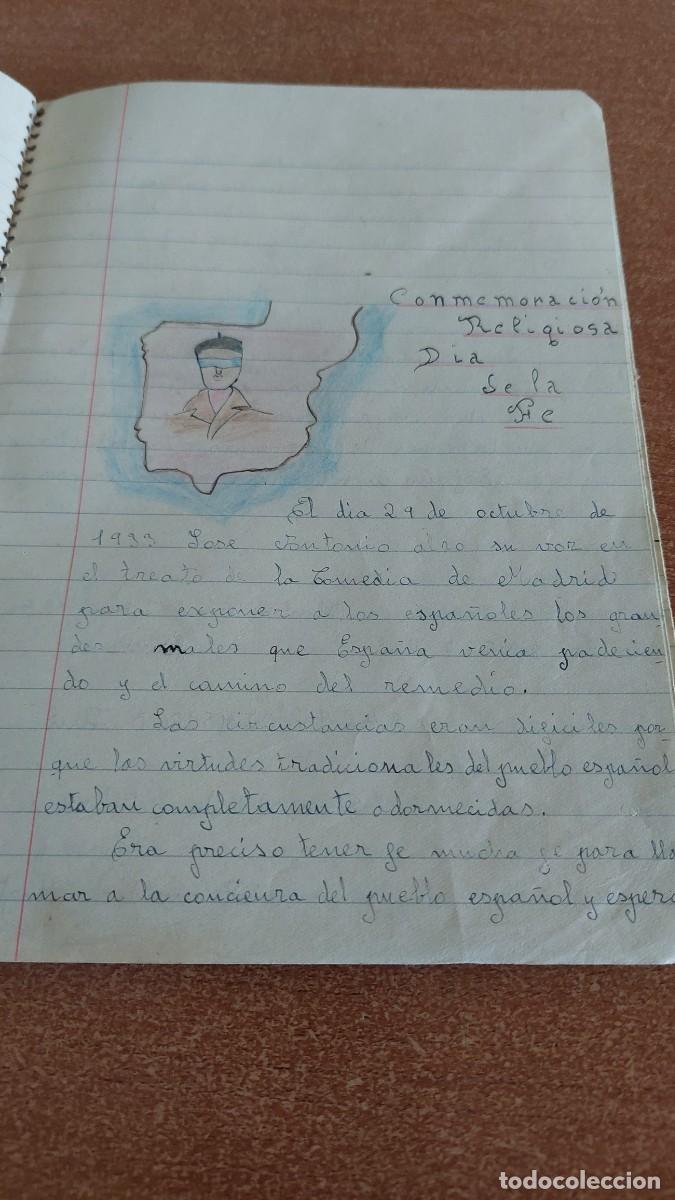 Conmemoración
Religiosa
Dia
de la
Fe
El dia 29 de octubre de
1933 Jose Antonio alzo su voz en
el treato de la Comedia de Madrid
para exponer a los españoles los gran
des males que España venia padecien-
do y el camino del remedio.
Las circustancias eran dificiles por-
que las virtudes tradicionales del pueblo español
estaban completamente adormecidas.
Era preciso tener fe mucha fe para lla
mar a la conciencia del pueblo español y espera
todocoleccion